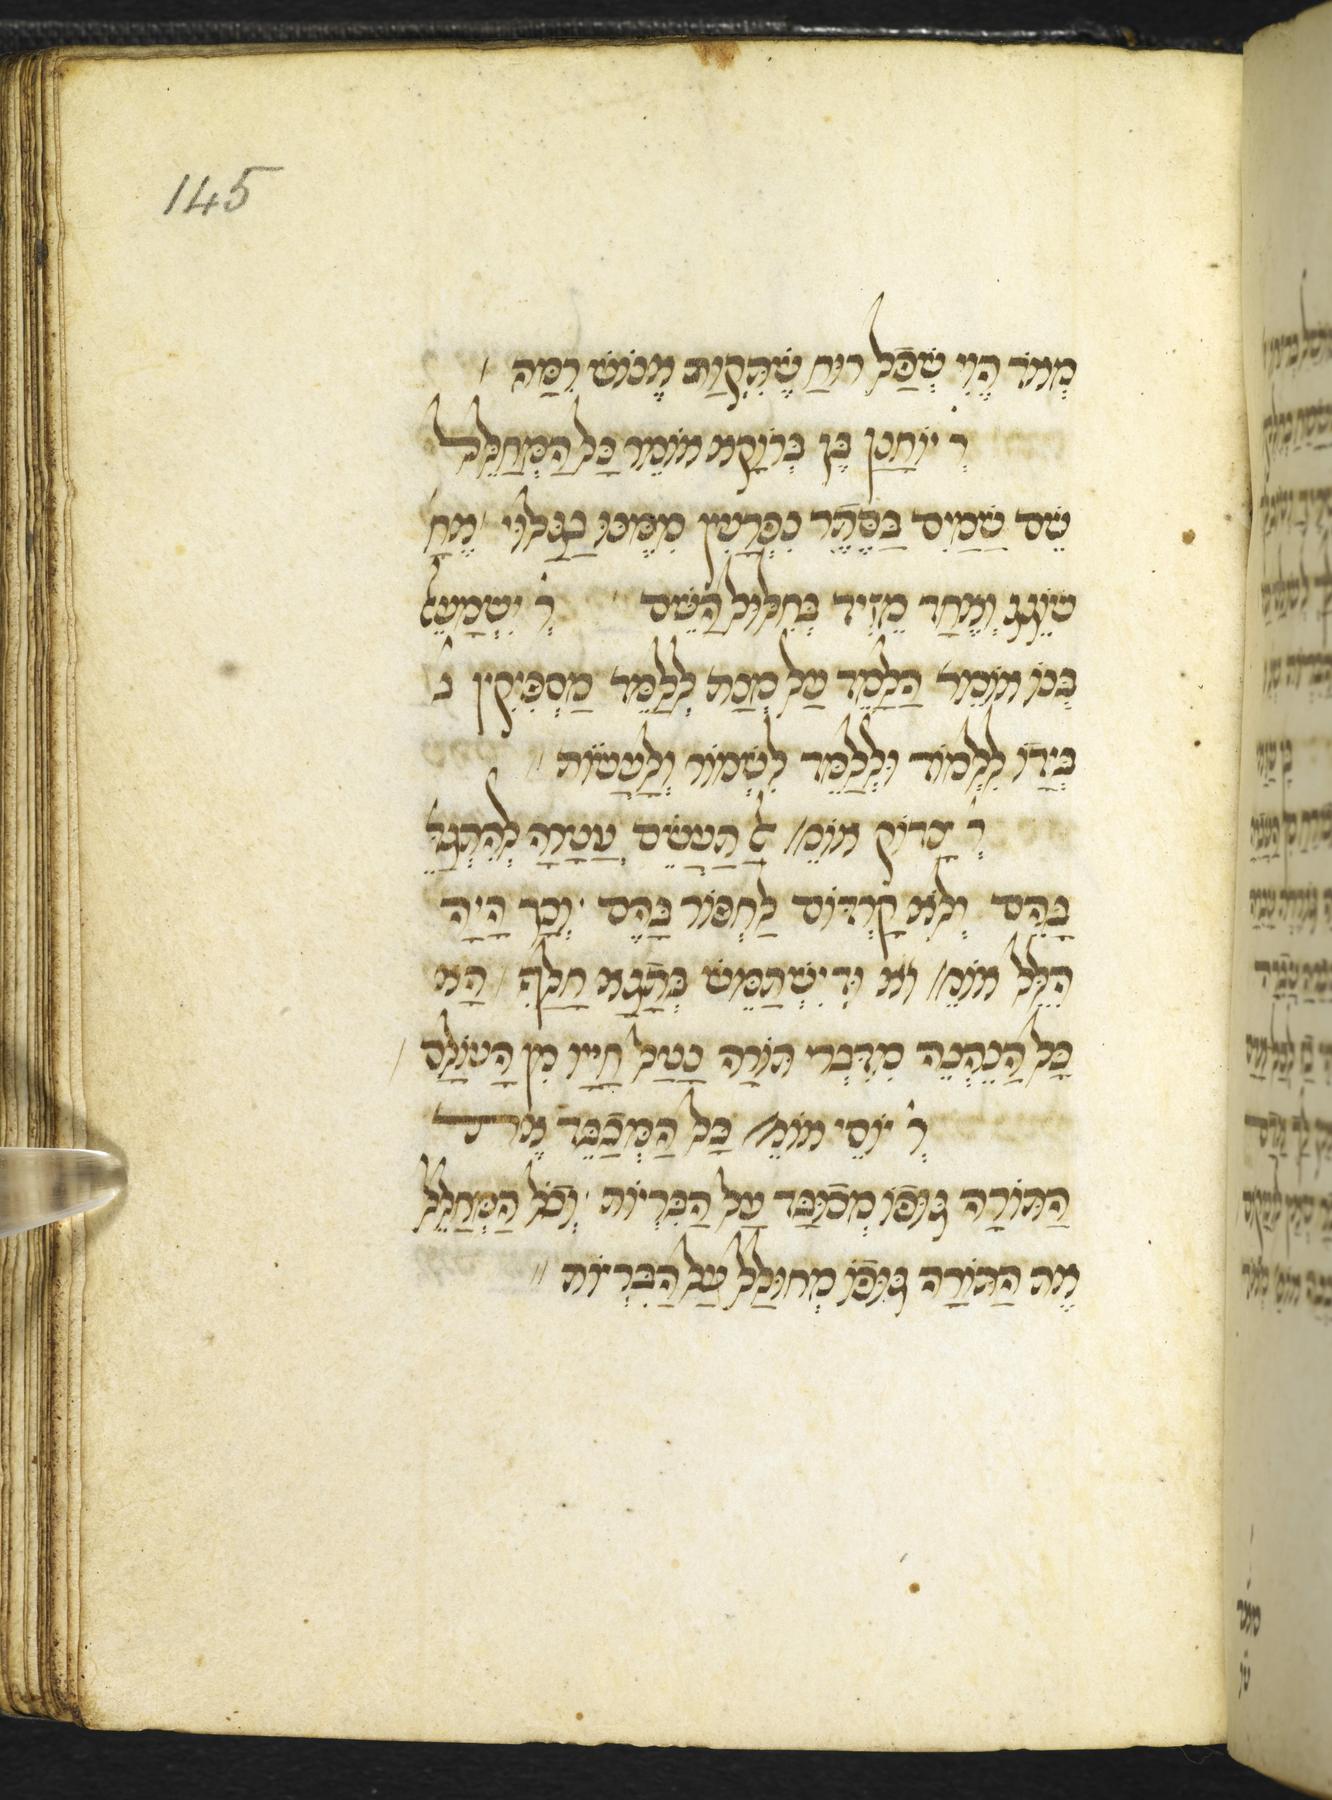 145
מְאֹד הֱוֵי שְׁפַל רוּחַ שֶׁתִּקְוַת אֱנוֹשׁ רִמָּה
ר' יוֹחָנָן בֶּן בְּרוֹקָא אוֹמֵר כָּל הַמְּחַלֵּל
שֵׁם שָׁמַיִם בַּסֵּתֶר נִפְרָעִין מִמֶּנּוּ בַגָּלוּי אֶחָ
שׁוֹגֵג וְאֶחָד מֵזִיד בְּחִלּוּל הַשֵּׁם ר' יִשְׁמָעֵאל
בְּנוֹ אוֹמֵר הַלָּמֵד עַל מְנָת לְלַמֵּד מַסְפִּיקִין
בְּיָדוֹ לִלְמוֹד וּלְלַמֵּד לִשְׁמוֹר וְלַעֲשׂוֹת
ר' צָדוֹק אוֹמֵ' תַּעֲשֵׂם עֲטָרָה לְהִתְגַּדֵּ
בָּהֶם וְלֹא קַרְדּוֹם לַחְפּוֹר בָּהֶם וְכָךְ הָיָה
הִלֵּל אוֹמֵ' יִשְׁתַּמֵּשׁ בְּתָגָא חָלַף הָא
כָּל הַנֵּהְנֶה מִדִּבְרֵי תוֹרָה נָטַל חַיָּיו מִן הָעוֹלָם
ר' יוֹסֵי אוֹמֵ' כָּל הַמְּכַבֵּד אֶת
הַתּוֹרָה גּוּפוֹ מְכֻבָּד עַל הַבְּרִיּוֹת וְכֹל הַמְּחַלֵּל
אֶת הַתּוֹרָה גּוּפוֹ מְחוּלָּל עַל הַבְּרִיּוֹת